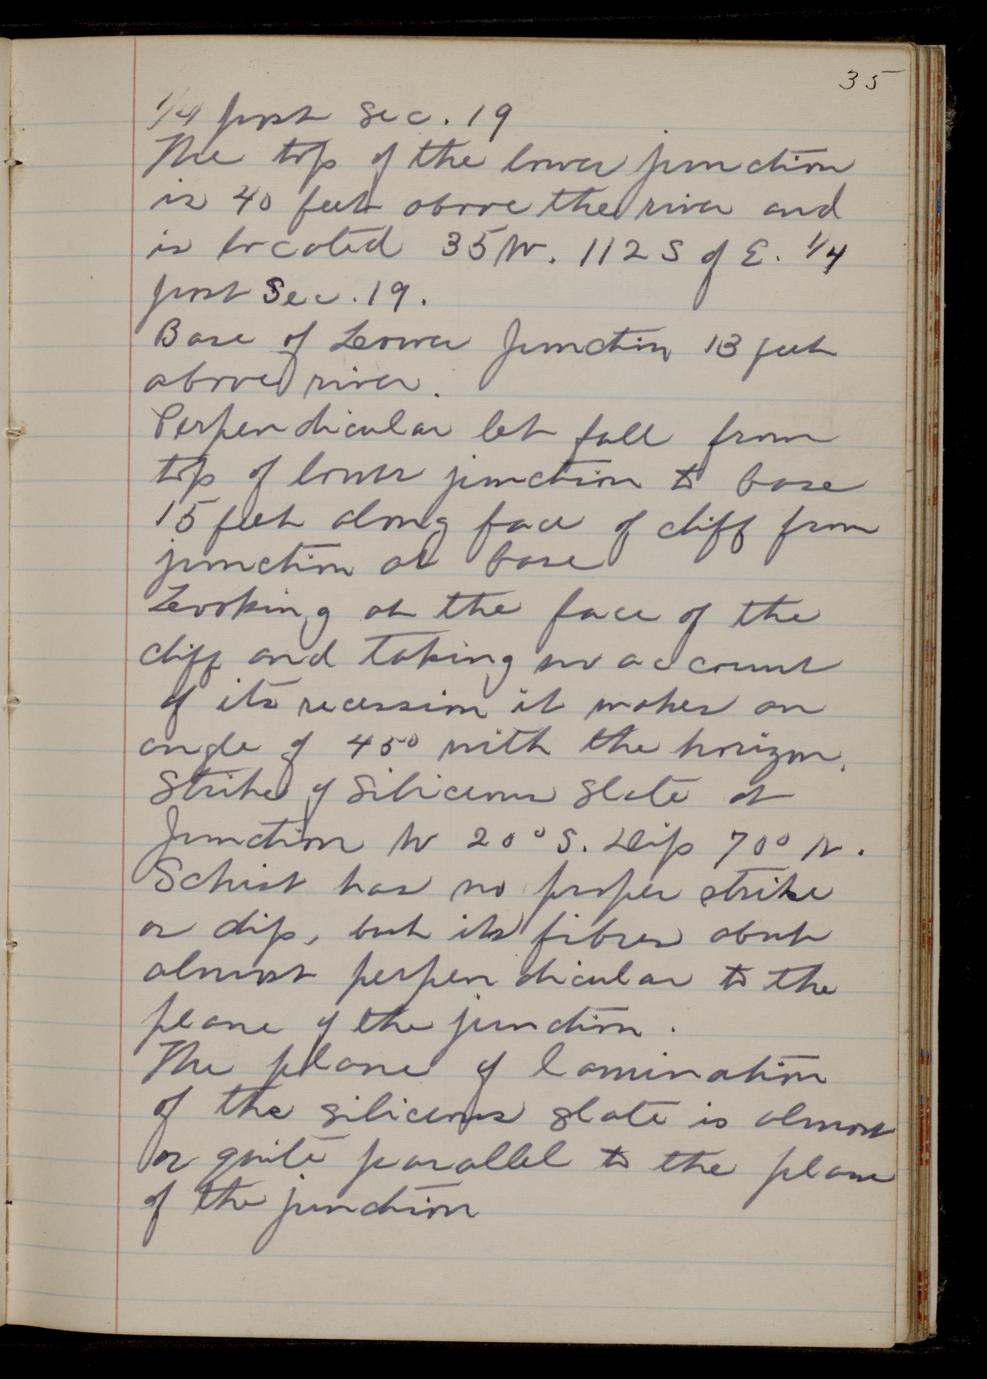 35
1/4 post Sec. 19
The top of the lower junction
is 40 feet above the river and
is located 35 W. 112 S of E. 1/4
post Sec. 19.
Base of Lower Junction 13 feet
above river.
Perpendicular let fall from
top of lower junction to base
15 feet along face of cliff from
junction at base
Looking at the face of the
cliff and taking no account
of its recession it makes an
angle of 45° with the horizon.
Strike of Siliceous Slate at
Junction W 20° S. Dip 70° N.
Schist has no proper strike
or dip, but its fibres abut
almost perpendicular to the
plane of the junction.
The plane of lamination
of the siliceous slate is almost
or quite parallel to the plane
of the junction